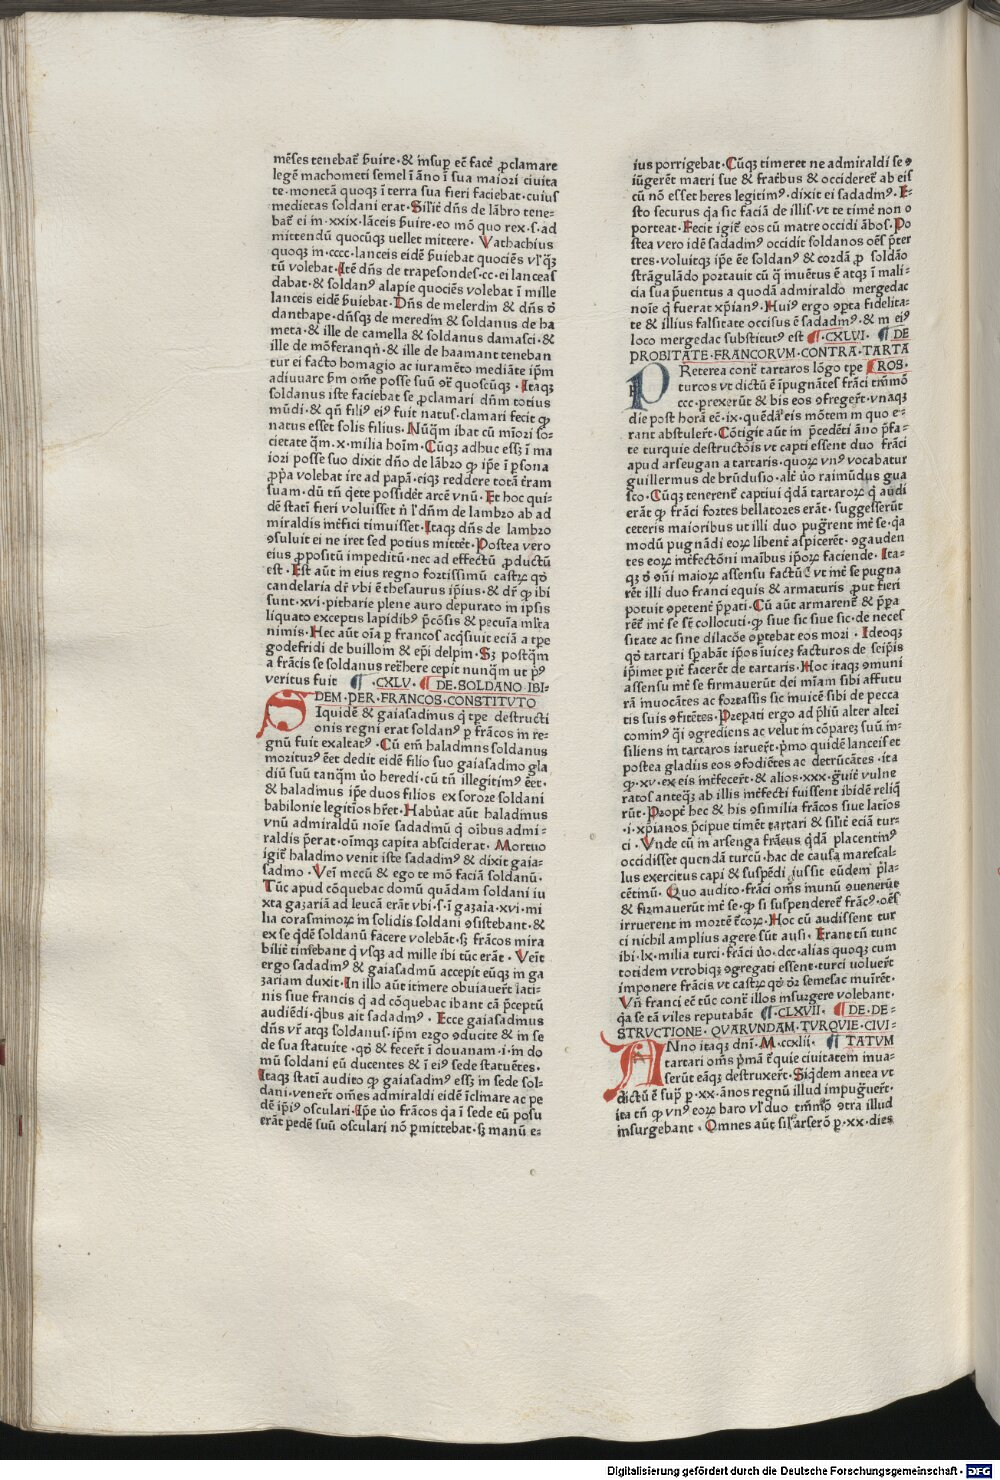 mẽses tenebat̃ ẜuire·& insup̱ ec̃ face᷑ ꝓclamare
legẽ machometi semel ĩ ãno ĩ sua maiori ciuita
te·monetã quoqꝫ ĩ terra sua fieri faciebat·cuius
medietas soldani erat·Silit̃ dñs de lãbro tene-
bat̃ ei in·xxix·lãceis ẜuire·eo mõ quo rex·s·ad
mittendũ quocũqꝫ uellet mittere· Vathachius
quoqꝫ in·cccc·lanceis eidẽ ẜuiebat quociẽs vl̓ q̃ꝫ
tũ volebat·Itẽ dñs de trapesondes·cc·ei lanceas
dabat·& soldanꝰ alapie quociẽs volebat ĩ mille
lanceis eidẽ ẜuiebat·Dñs de melerdin & dñs ð
danthape·dñsqꝫ de meredin & soldanus de ha
meta·& ille de camella & soldanus damasci·&
ille de mõferanqñ·& ille de haamant teneban
tur ei facto homagio ac iuramẽto mediãte ip̃m
adiuuare ẜm om̃e posse suũ ꝯt̃ quoscũqꝫ ·Itaqꝫ
soldanus iste faciebat se ꝓclamari dñm totius
mũdi·& qñ filiꝰ eiꝰ fuit natus·clamari fecit ꝙ
natus esset solis filius· Nũqm̃ ibat cũ mĩori so-
cietate q̃m·x·milia hoĩm·Cũqꝫ adhuc essꝫ ĩ ma
iori posse suo dixit dño de lãbro ꝙ ip̃e ĩ p̱sona
ꝓp̃a volebat ire ad papã·eiqꝫ reddere totã t̃ram
suam·dũ tñ q̃ete possidet̃ arcẽ vnũ· Et hoc qui-
dẽ stati fieri voluisset ñ l̓ dñm de lambro ab ad
miraldis int̃fici timuisset·Itaqꝫ dñs de lambro
ꝯsuluit ei ne iret sed potius mittet̃·Postea vero
eius ꝓpositũ impeditũ·nec ad effectũ ꝓductũ
est·Est aũt in eius regno fortissimũ castꝝ qð
candelaria dr̃ vbi ẽ thesaurus ip̃ius·& dr̃ ꝙ ibi
sunt·xvi·pitharie plene auro depurato in ipsis
liquato exceptis lapidibꝰ p̃cõsis & pecuĩa ml̃ta
nimis·Hec aũt oĩa p̱ francos acq̃siuit eciã a tp̃e
godefridi de buillom & ep̃i delpin·Sꝫ postq̃m
a frãcis se soldanus ret̃here cepit nunq̃m ut pꝰ
veritus fuit ¶ ·CXLV· ¶ DE·SOLDANO IBI-
DEM·PER·FRANCOS·CONSTITVTO
SIquidẽ & gaiasadinus q̃ tp̃e destructi
onis regni erat soldanꝰ p̱ frãcos in re-
gnũ fuit exaltatꝰ ·Cũ em̃ haladinus soldanus
moriturꝰ ẽet dedit eidẽ filio suo gaiasadino gla
diũ suũ tanq̃m ùo heredi·cũ tñ illegitimꝰ ẽet·
& haladinus ip̃e duos filios ex sorore soldani
babilonie legitĩos hr̃et·Habũat aũt haladinus
vnũ admiraldũ noĩe sadadinũ q̃ oĩbus admi-
raldis p̃erat·oĩmqꝫ capita absciderat·Mortuo
igit̃ haladino venit iste sadadinꝰ & dixit gaia-
sadino ·Veĩ mecũ & ego te mõ faciã soldanũ·
Tũc apud cõquebac domũ quãdam soldani iu
xta gaȝariã ad leucã erãt vbi·s·ĩ gaȝaia·xvi·mi
lia corasminoꝝ in solidis soldani ꝯsistebant·&
ex se q̃dẽ soldanũ facere volebãt·sꝫ frãcos mira
bilit̃ timebant q̃ vsqꝫ ad mille ibi tũc erãt·Veĩt
ergo sadadinꝰ & gaiasadinũ accepit eũqꝫ in ga
ȝariam duxit·In illo aũt itinere obuiauer̃t lati-
nis siue francis q̃ ad cõquebac ibant cã p̃ceptũ
audiẽdi·q̃bus ait sadadinꝰ · Ecce gaiasadinus
dñs vr̃ atqꝫ soldanus·ip̃m ergo ꝯducite & in se
de sua statuite ·qð & fecer̃t ĩ douanam·i·in do
mũ soldani eũ ducentes & ĩ eiꝰ sede statuẽtes·
Itaqꝫ statĩ audito ꝙ gaiasadinꝰ essꝫ in sede sol-
dani·vener̃t om̃es admiraldi eidẽ ĩclinare ac pe
dẽ ip̃iꝰ osculari·Ip̃e ùo frãcos q̃a ĩ sede eũ posu
erãt pedẽ suũ osculari nõ p̱mittebat·sꝫ manũ e-
ius porrigebat·Cũqꝫ timeret ne admiraldi se ꝯ
iũgerẽt matri sue & frat̃bus & occideret̃ ab eis
cũ nõ esset heres legitimꝰ·dixit ei sadadinꝰ·E-
sto securus q̃a sic faciã de illis·vt te time᷑ non ꝯ
porteat·Fecit igit̃ eos cũ matre occidi ãbos·Po
stea vero idẽ sadadinꝰ occidit soldanos oẽs p̃ter
tres·voluitqꝫ ip̃e ẽe soldanꝰ & cordã ꝓ soldão
strãgulãdo portauit cũ q̃ inuẽtus ẽ atqꝫ ĩ mali-
cia sua p̃uentus a quodã admiraldo mergedac
noĩe q̃ fuerat xp̃ianꝰ·Huiꝰ ergo ꝯpta fidelita-
te & illius falsitate occisus ẽ sadadinꝰ·& in eiꝰ
loco mergedac substitutꝰ est ¶ ·CXLVI· ¶ DE
PROBITATE·FRANCORVM·CONTRA·TARTA
PReterea cont̃ tartaros lõgo tp̃e ¶ROS·
turcos vt dictũ ẽ ĩpugnãtes frãci tm̃mõ
ccc·prexerũt & bis eos ꝯfreger̃t·vnaqꝫ
die post horã ec̃·ix·quẽdã eis mõtem in quo e-
rant abstuler̃t·Cõtigit aũt in p̃cedẽti ãno p̃fa-
te turquie destructõis vt capti essent duo frãci
apud arseugan a tartaris·quoꝝ vnꝰ vocabatur
guillermus de brũdusio·alt̃ ùo raimũdus gua
sco·Cũqꝫ tenerent̃ captiui q̃dã tartaroꝝ q̃ audi
erãt ꝙ frãci fortes bellatores erãt·suggesserũt
ceteris maioribus ut illi duo pug̃rent int̃ se·q̃a
modũ pugnãdi eoꝝ libent̃ aspicerẽt·ꝯgauden
tes eoꝝ int̃fectõni maĩbus ip̃oꝝ faciende·Ita-
qꝫ ð oñi maioꝝ assensu factũ ẽ vt int̃ se pugna
rẽt illi duo franci equis & armaturis ꝓut fieri
potuit ꝯpetent̃ p̃pati·Cũ aũt armarent̃ & p̃pa
rẽt̃ int̃ se sẽt collocuti·ꝙ siue sic siue sic·de neces
sitate ac sine dilacõe oꝑtebat eos mori ·Ideoqꝫ
qð tartari sp̱abãt ip̃os ĩuicẽꝫ facturos de seip̃is
ip̃imet p̱it̃ facerẽt de tartaris·Hoc itaqꝫ ꝯmuni
assensu int̃ se firmauerũt dei mĩam sibi affutu
rã inuocãtes ac fortassis sic inuicẽ sibi de pecca
tis suis ꝯfitẽtes·Prepati ergo ad p̃liũ alter altei
cominꝰ q̃i ꝯgrediens ac velut in cõparẽꝫ suũ in-
siliens in tartaros irruer̃t·p̃mo quidẽ lanceis et
postea gladiis eos ꝯfodiẽtes ac detrũcãtes·ita
ꝙ·xv·ex·eis int̃fecer̃t·& alios·xxx·g̃uit̃ vulne
ratos anteq̃ꝫ ab illis int̃fecti fuissent ibidẽ reliq̃
rũt·Propt̃ hec & his ꝯsimilia frãcos siue latĩos
·i·xp̃ianos p̃cipue timẽt tartari & silit̃ eciã tur-
ci ·Vnde cũ in arsenga frãcus q̃dã placentinꝰ
occidisset quendã turcũ·hac de causa marescal-
lus exercitus capi & suspẽdi iussit eũdem p̃la-
cẽtinũ·Quo audito·frãci om̃s inunũ ꝯuenerũt
& firmauerũt int̃ se·ꝙ si suspenderet̃ frãcꝰ·oẽs
irruerent in mortẽ t̃coꝝ·Hoc cũ audissent tur
ci nichil amplius agere sũt ausi·Erant tñ tunc
ibi·lx·milia turci·frãci ùo·dcc·alias quoqꝫ cum
totidem vtrobiqꝫ ꝯgregati essent·turci voluer̃t
imponere frãcis vt castꝝ qð ðr semesac muĩrẽt·
Vñ franci ec̃ tũc cont̃ illos insurgere volebant·
q̃a se tã viles reputabãt ¶ ·CLXVII· ¶ DE·DE-
STRVCTIONE·QVARVNDAM·TVRQVIE·CIVI-
ANno itaqꝫ dnĩ·M·ccxlii· ¶ TATVM
tartari om̃s p̃mã t̃ quie ciuitatem inua-
serũt eãqꝫ destruxer̃t·Siq̃dem antea vt
dictũ ẽ sup̱ p̱·xx·ãnos regnũ illud impug̃uer̃t·
ita tñ ꝙ vnꝰ eoꝝ baro vl̓ duo tm̃mõ ꝯtra illud
insurgebant ·Omnes aũt sil̓ arserõ p̱·xx·dies
Digitalisierung gefördert durch die Deutsche Forschungsgemeinschaft - DFG